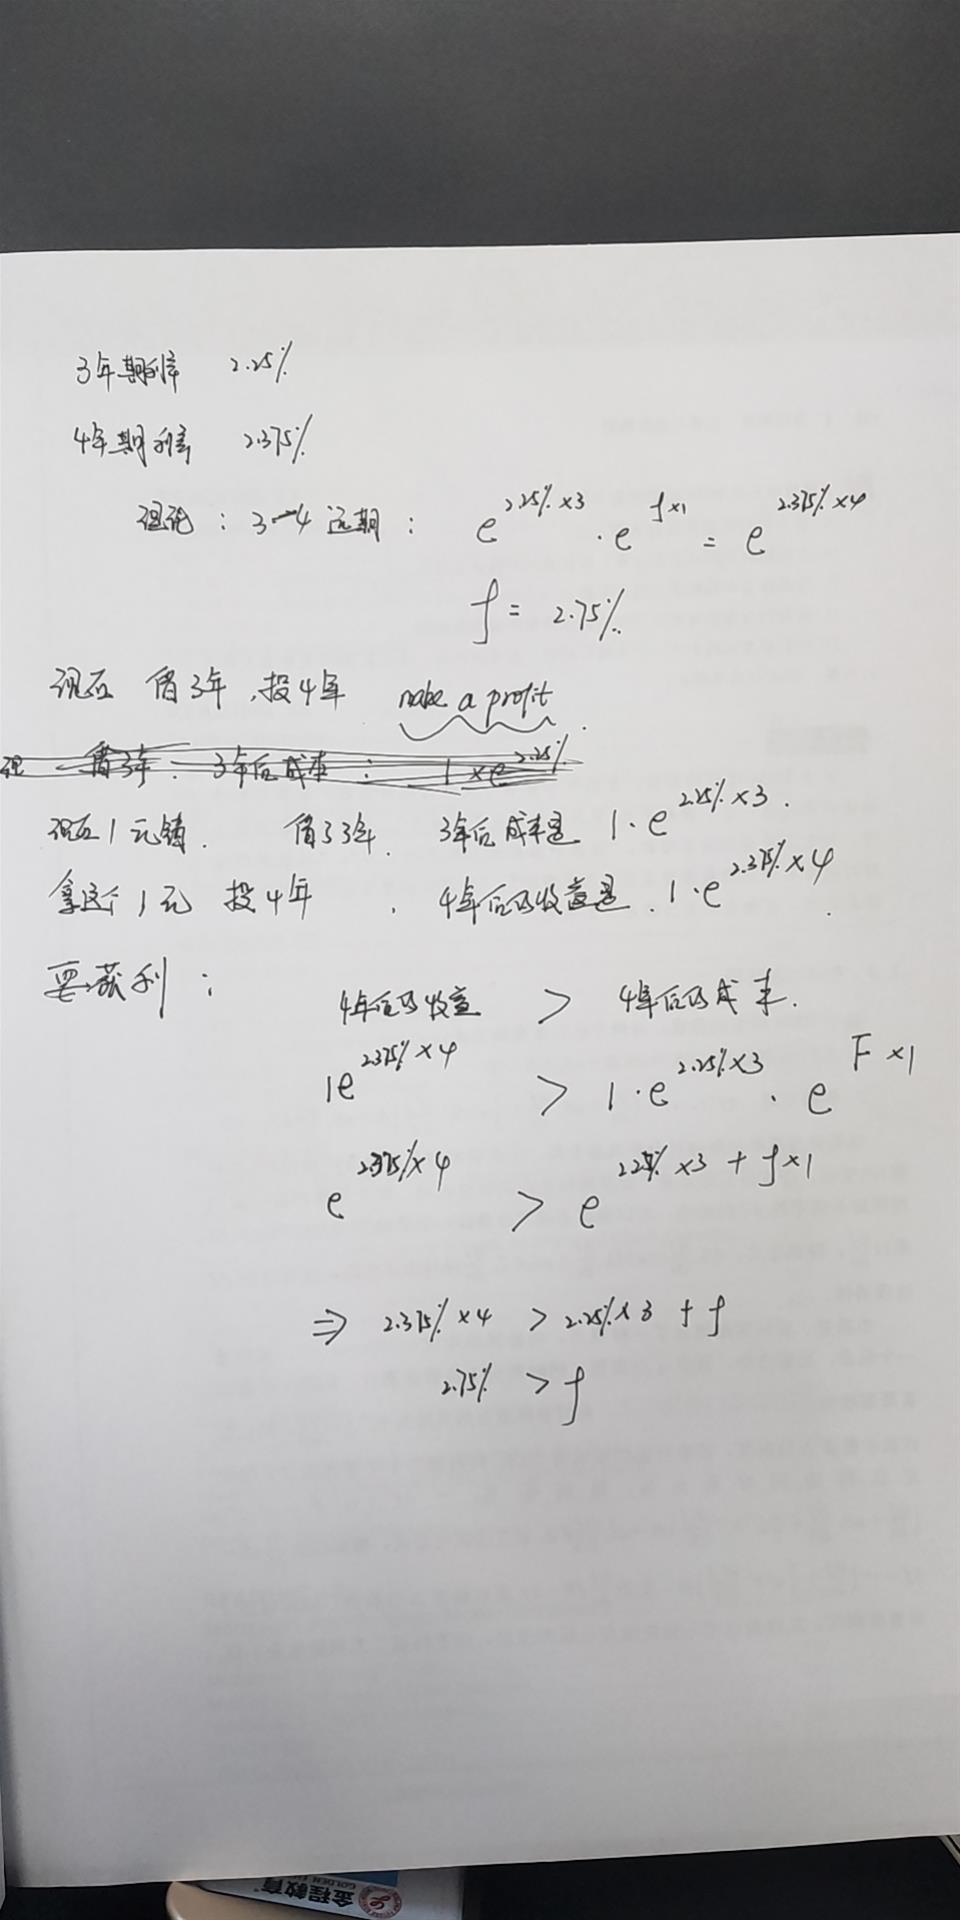 3年期利率 2.25%
4年期利率 2.375%
理论：3-4远期： e^{2.25%×3} · e^{f×1} = e^{2.375%×4}
f = 2.75%
现在 借3年，投4年 make a profit.
现 借3年：3年后成本： 1×e^{2.25%}
现在1元钱. 借了3年. 3年后成本是 1·e^{2.25%×3}.
拿这个1元 投4年 . 4年后的收益是. 1·e^{2.375%×4}.
要获利：
4年后的收益 > 4年后的成本.
1e^{2.375%×4} > 1·e^{2.25%×3} · e^{F×1}
e^{2.375%×4} > e^{2.25%×3+f×1}
⇒ 2.375%×4 > 2.25%×3 + f
2.75% > f
金程教育